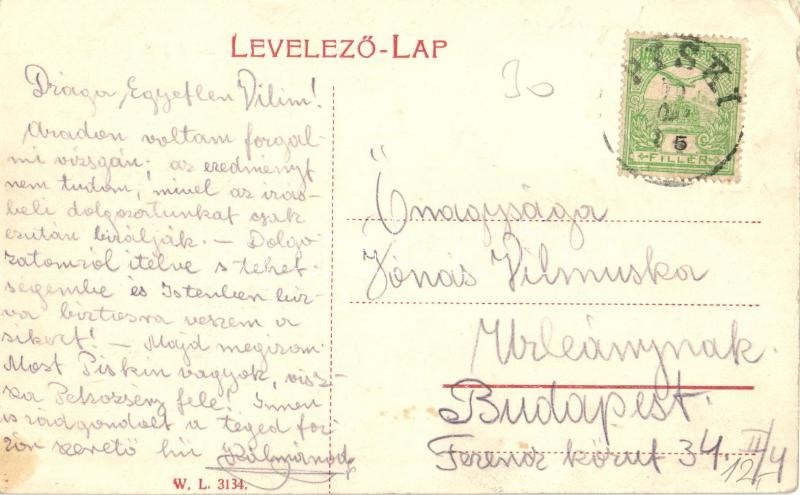 LEVELEZŐ-LAP
30
PISKI
5
FILLER
Drága Egyetlen Vilim!
Aradon voltam forgal-
mi vizsgán; az eredményt
nem tudom, mivel az irás-
beli dolgozatunkat csak
ezután birálják. — Dolgo-
zatomról itélve s tehet-
ségembe és Istenben biz-
va biztosra veszem a
sikert! — Majd megirom.
Most Piskin vagyok, visz-
sza felé! Innen
is rád gondolt a téged for-
rón szerető hű Kálmánod
Őnagysága
Jónás Vilmuska
Urleánynak.
Budapest.
Ferenc körut 34. II/4
12.
W. L. 3134.